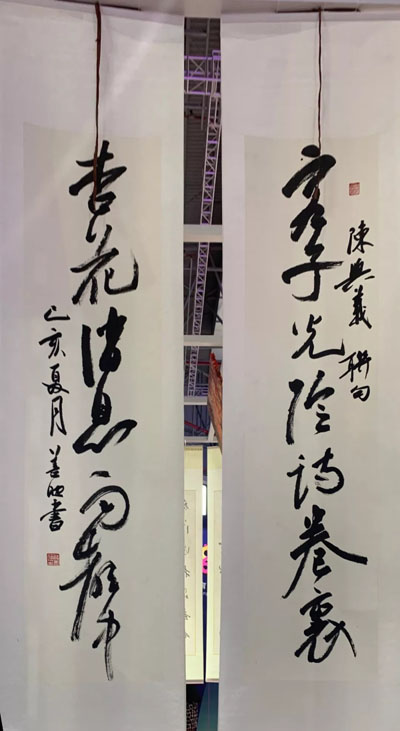 客子光陰詩卷裏
陳與義聯句
杏花消息雨聲中
己亥夏月 善書